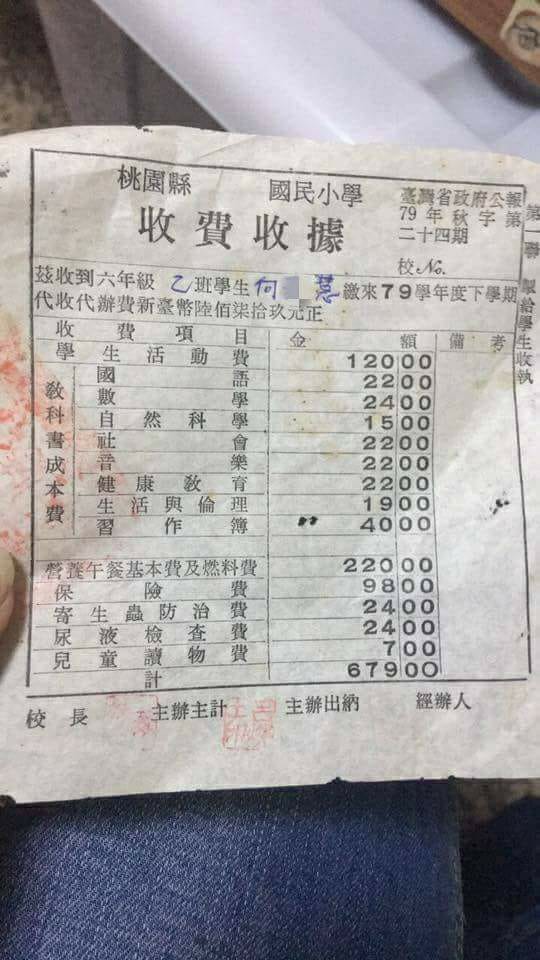 桃園縣 國民小學
收費收據
臺灣省政府公報
79年秋字第
二十四期
校No.
第一聯 報給學生收執
茲收到六年級 乙班學生何 慧 繳來79學年度下學期
代收代辦費新臺幣陸佰柒拾玖元正
收費項目 金額 備考
學生活動費 120 00
教科書成本費
國語 22 00
數學 24 00
自然科學 15 00
社會 22 00
音樂 22 00
健康教育 22 00
生活與倫理 19 00
習作簿 〃 40 00
營養午餐基本費及燃料費 220 00
保險費 98 00
寄生蟲防治費 24 00
尿液檢查費 24 00
兒童讀物費 7 00
計 679 00
校長 主辦主計 主辦出納 經辦人